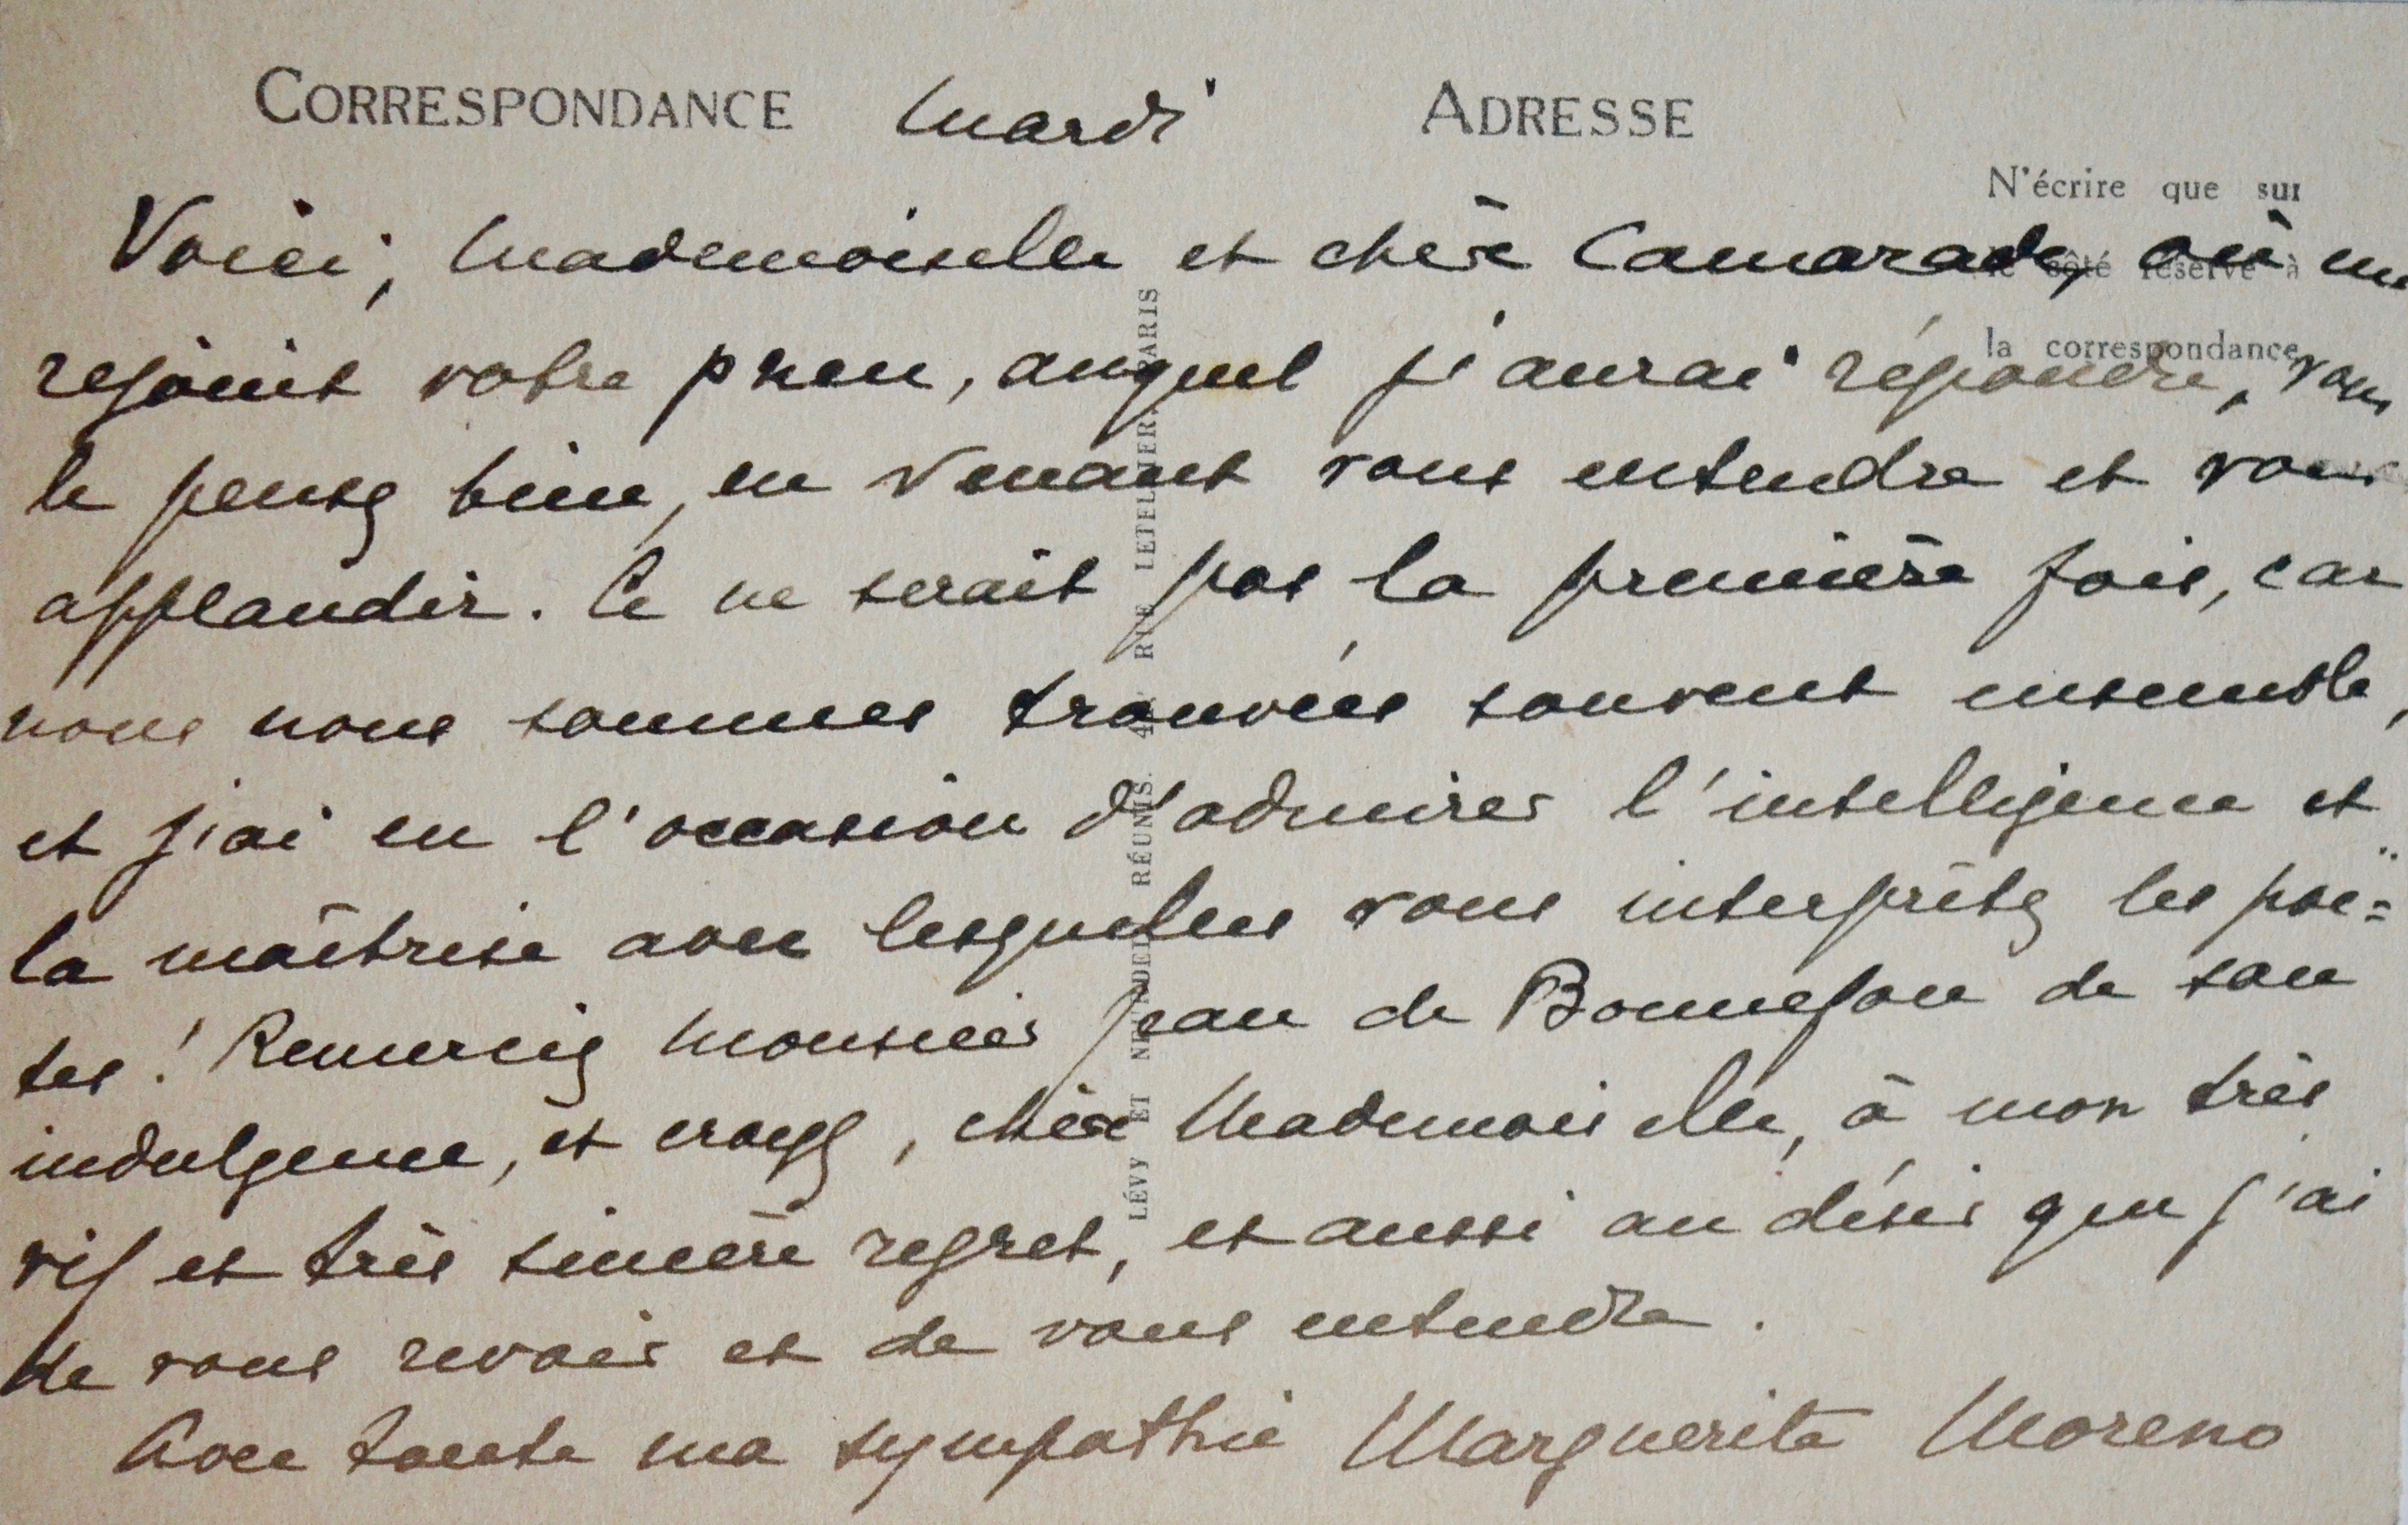 CORRESPONDANCE Mardi ADRESSE
N'écrire que sur
le côté réservé à
la correspondance
Voici, Mademoiselle et chère Camarade, où me
rejoint votre pneu, auquel j'aurai répondu, vous
le pensez bien, en venant vous entendre et vous
applaudir. Ce ne serait pas la première fois, car
nous nous sommes trouvées souvent ensemble,
et j'ai eu l'occasion d'admirer l'intelligence et
la maîtrise avec lesquelles vous interprêtez les poë=
tes! Remerciez Monsieur Jean de Bonnefon de son
indulgence, et croyez, chère Mademoiselle, à mon très
vif et très sincère regret, et aussi au désir que j'ai
de vous revoir et de vous entendre.
Avec toute ma sympathie Marguerite Moreno
LÉVY ET NEURDEIN RÉUNIS. 44, RUE LETELLIER, PARIS